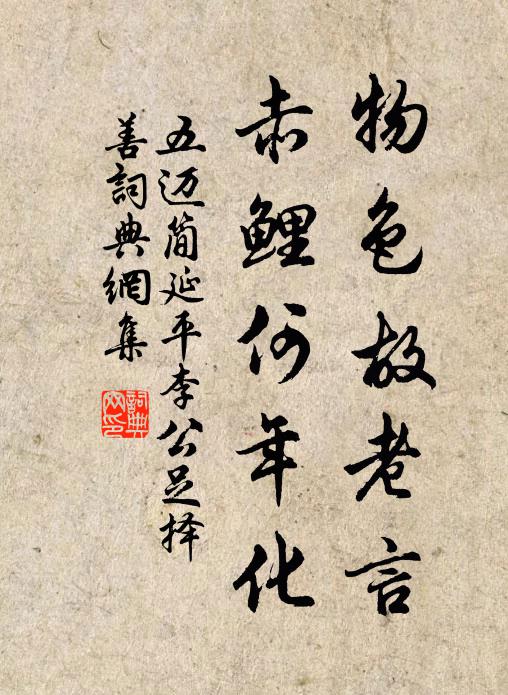 物色故老言
赤鯉何年化
五迈简延平李公足择
善詞典網集
詞典网印